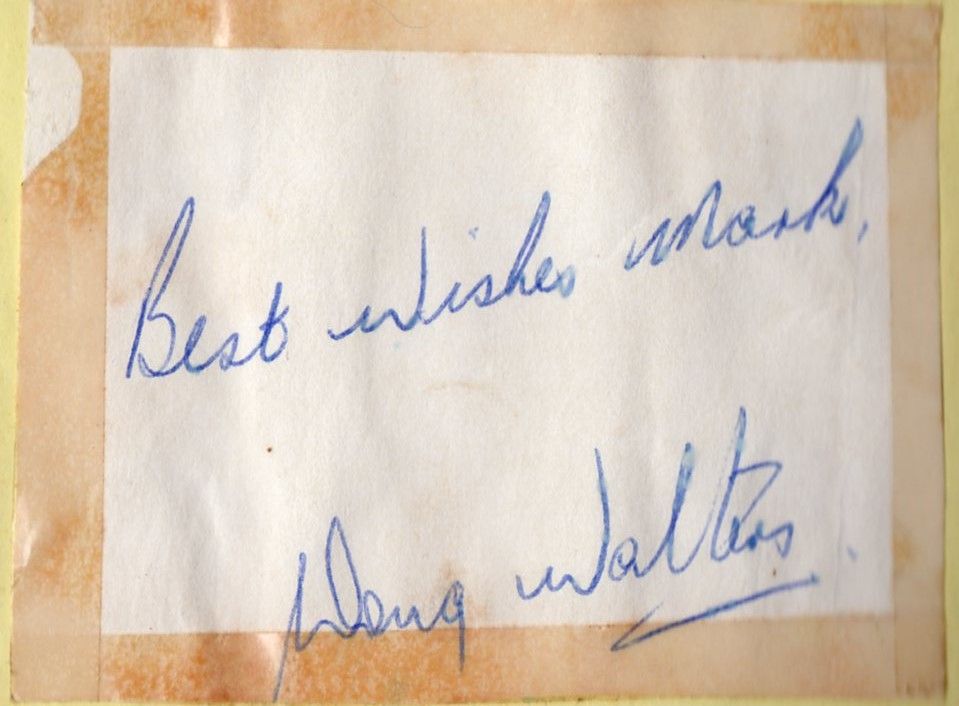 Best Wishes Mark,
Doug Walters.